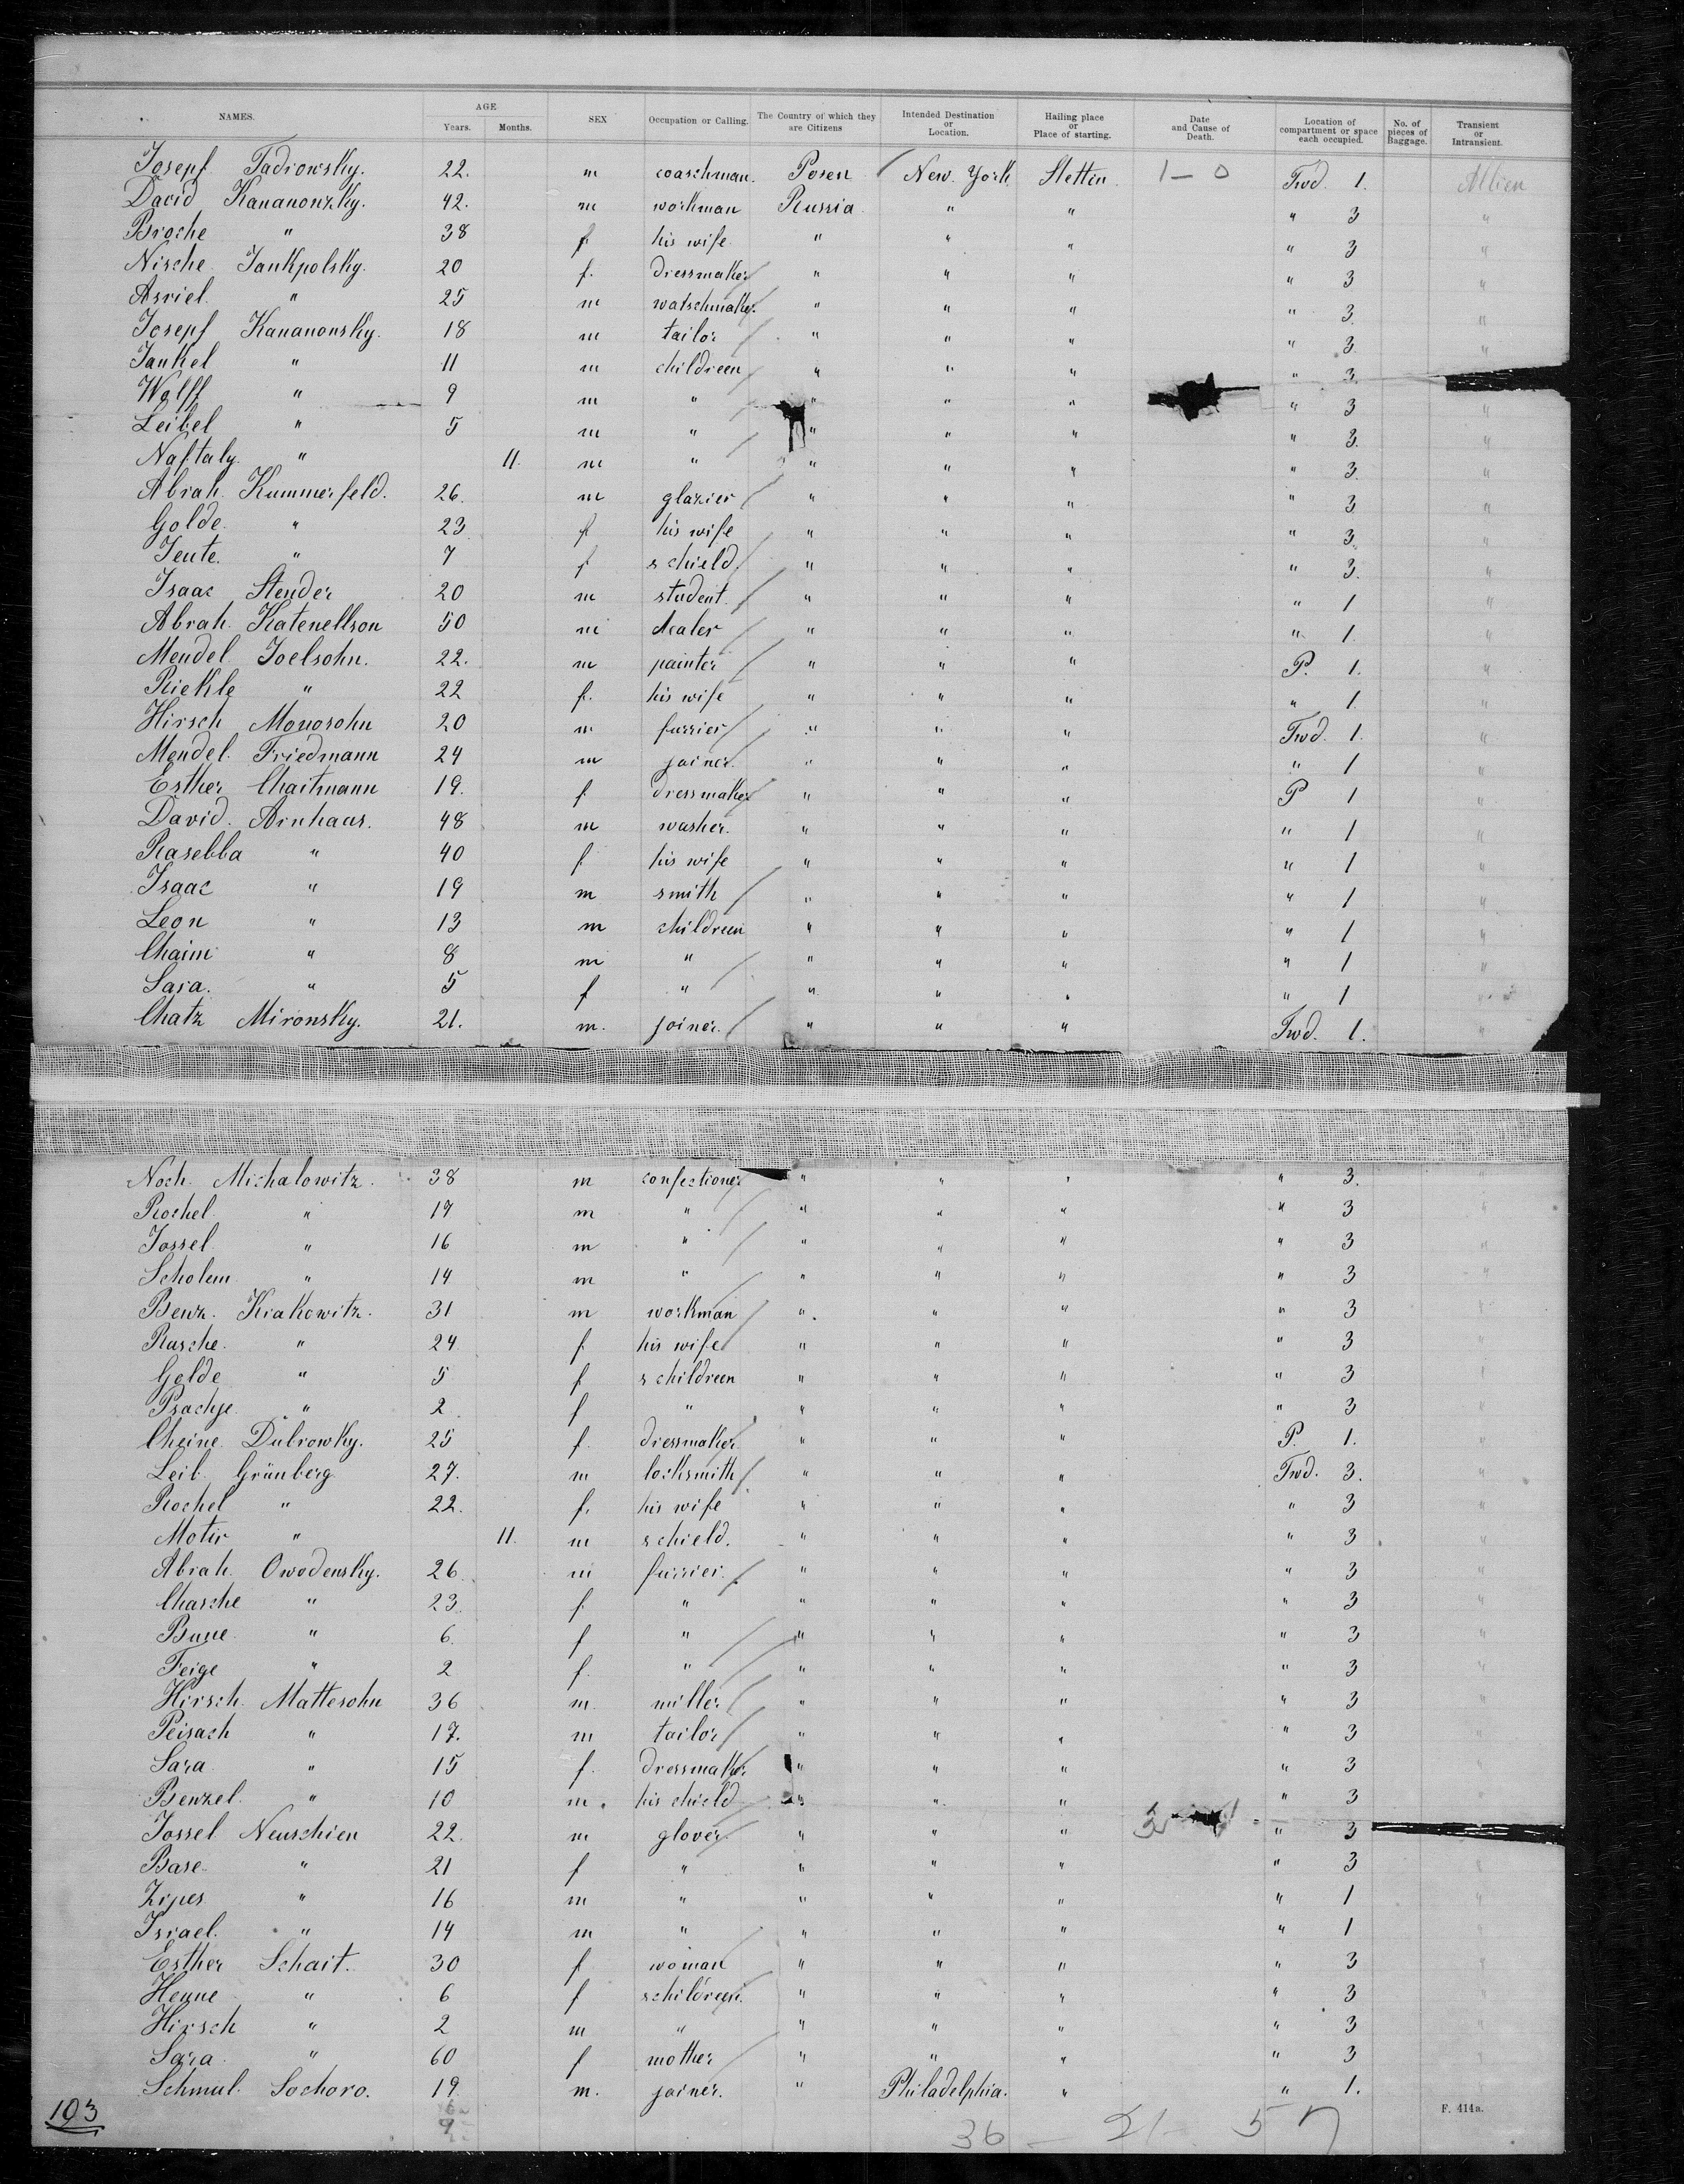 NAMES. AGE SEX Occupation or Calling. The Country of which they are Citizens Intended Destination or Location. Hailing place or Place of starting. Date and Cause of Death. Location of compartment or space each occupied. No. of pieces of Baggage. Transient or Intransient.
Years. Months.
Josepf Tadrowsky. 22. m coaschman. Posen New York Stettin 1 – 0 Twd. 1. Allien
David Kananowzky. 42. m workman Russia " " " 3 "
Brosche " 38 f his wife " " " " 3 "
Nische Jankpolsky. 20 f. dressmaker " " " " 3 "
Asriel " 25 m watschmaker. " " " " 3. "
Josepf Kananowsky. 18 m tailor " " " " 3 "
Jankel " 11 m childreen " " " " 3.
Wolff " 9 m " " " " " 3 "
Leibel " 5 m " " " " " 3. "
Naftaly " 11. m " " " " " 3. "
Abrah. Kummerfeld. 26. m glazier " " " " 3 "
Golde " 23 f his wife " " " " 3. "
Jeute. " 7 f s chield. " " " " 3. "
Isaac Stender 20 m student. " " " " 1 "
Abrah. Katenellson 50 m dealer " " " " 1. "
Mendel Joelsohn. 22. m painter " " " P. 1. "
Riekle " 22 f. his wife " " " " 1. "
Hirsch Monosohn 20 m furrier " " " Twd. 1. "
Mendel. Friedmann 24 m joiner. " " " " 1 "
Esther Chaitmann 19. f dressmaker " " " P 1 "
David. Arnhaus. 48 m washer. " " " " 1 "
Rasebba " 40 f his wife " " " " 1 "
Isaac " 19 m smith " " " " 1 "
Leon " 13 m childreen " " " " 1 "
Chaim " 8 m " " " " " 1 "
Sara. " 5 f " " " " " 1 "
Chatz Mironsky. 21. m. joiner. " " " Twd. 1. "
Noch. Michalowitz. 38 m confectioner " " " " 3.
Rochel " 17 m " " " " " 3 "
Jossel " 16 m " " " " " 3 "
Scholem " 14 m " " " " " 3 "
Benz. Krakowitz. 31 m workman " " " " 3 "
Rasche. " 24 f his wife " " " " 3 "
Golde " 5 f s childreen " " " " 3 "
Prachje. " 2 f " " " " " 3 "
Cheine. Dubrowky. 25 f. dressmaker " " " P. 1. "
Leib. Grünberg 27. m locksmith " " " Twd. 3. "
Rochel " 22. f. his wife " " " " 3 "
Motir " 11. m s chield. " " " " 3 "
Abrah. Owodensky. 26 m furrier. " " " " 3 "
Chasche " 23 f. " " " " " 3 "
Bune " 6. f " " " " " 3 "
Feige " 2 f. " " " " " 3 "
Hirsch. Mattesohn 36 m. miller " " " " 3 "
Peisach " 17. m tailor " " " " 3 "
Sara " 15 f. dressmaker " " " " 3 "
Benzel. " 10 m. his chield " " " " 3 "
Jossel Neuschien 22. m glover " " " " 3
Base. " 21 f " " " " " 3 "
Zipes " 16 m " " " " " 1 "
Israel. " 14 m " " " " " 1 "
Esther Schait. 30 f woman " " " " 3 "
Henne " 6 f s childreen. " " " " 3 "
Hirsch " 2 m " " " " " 3 "
Sara " 60 f mother " " " " 3 "
Schmul. Sochoro. 19 m. joiner. " Philadelphia. " " 1.
193 F. 414a.
36 – 21 – 57